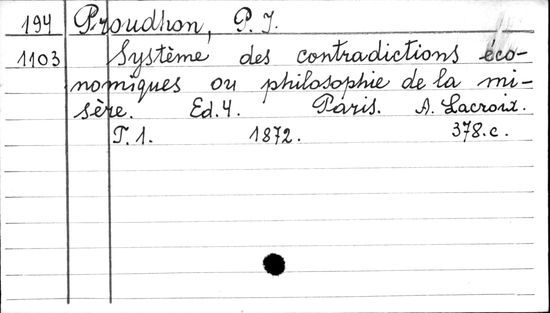 194 Proudhon, P. J.
1103 Système des contradictions éco-
nomiques ou philosophie de la mi-
sère. Ed. 4. Paris. A. Lacroix.
T. 1. 1872. 378. c.